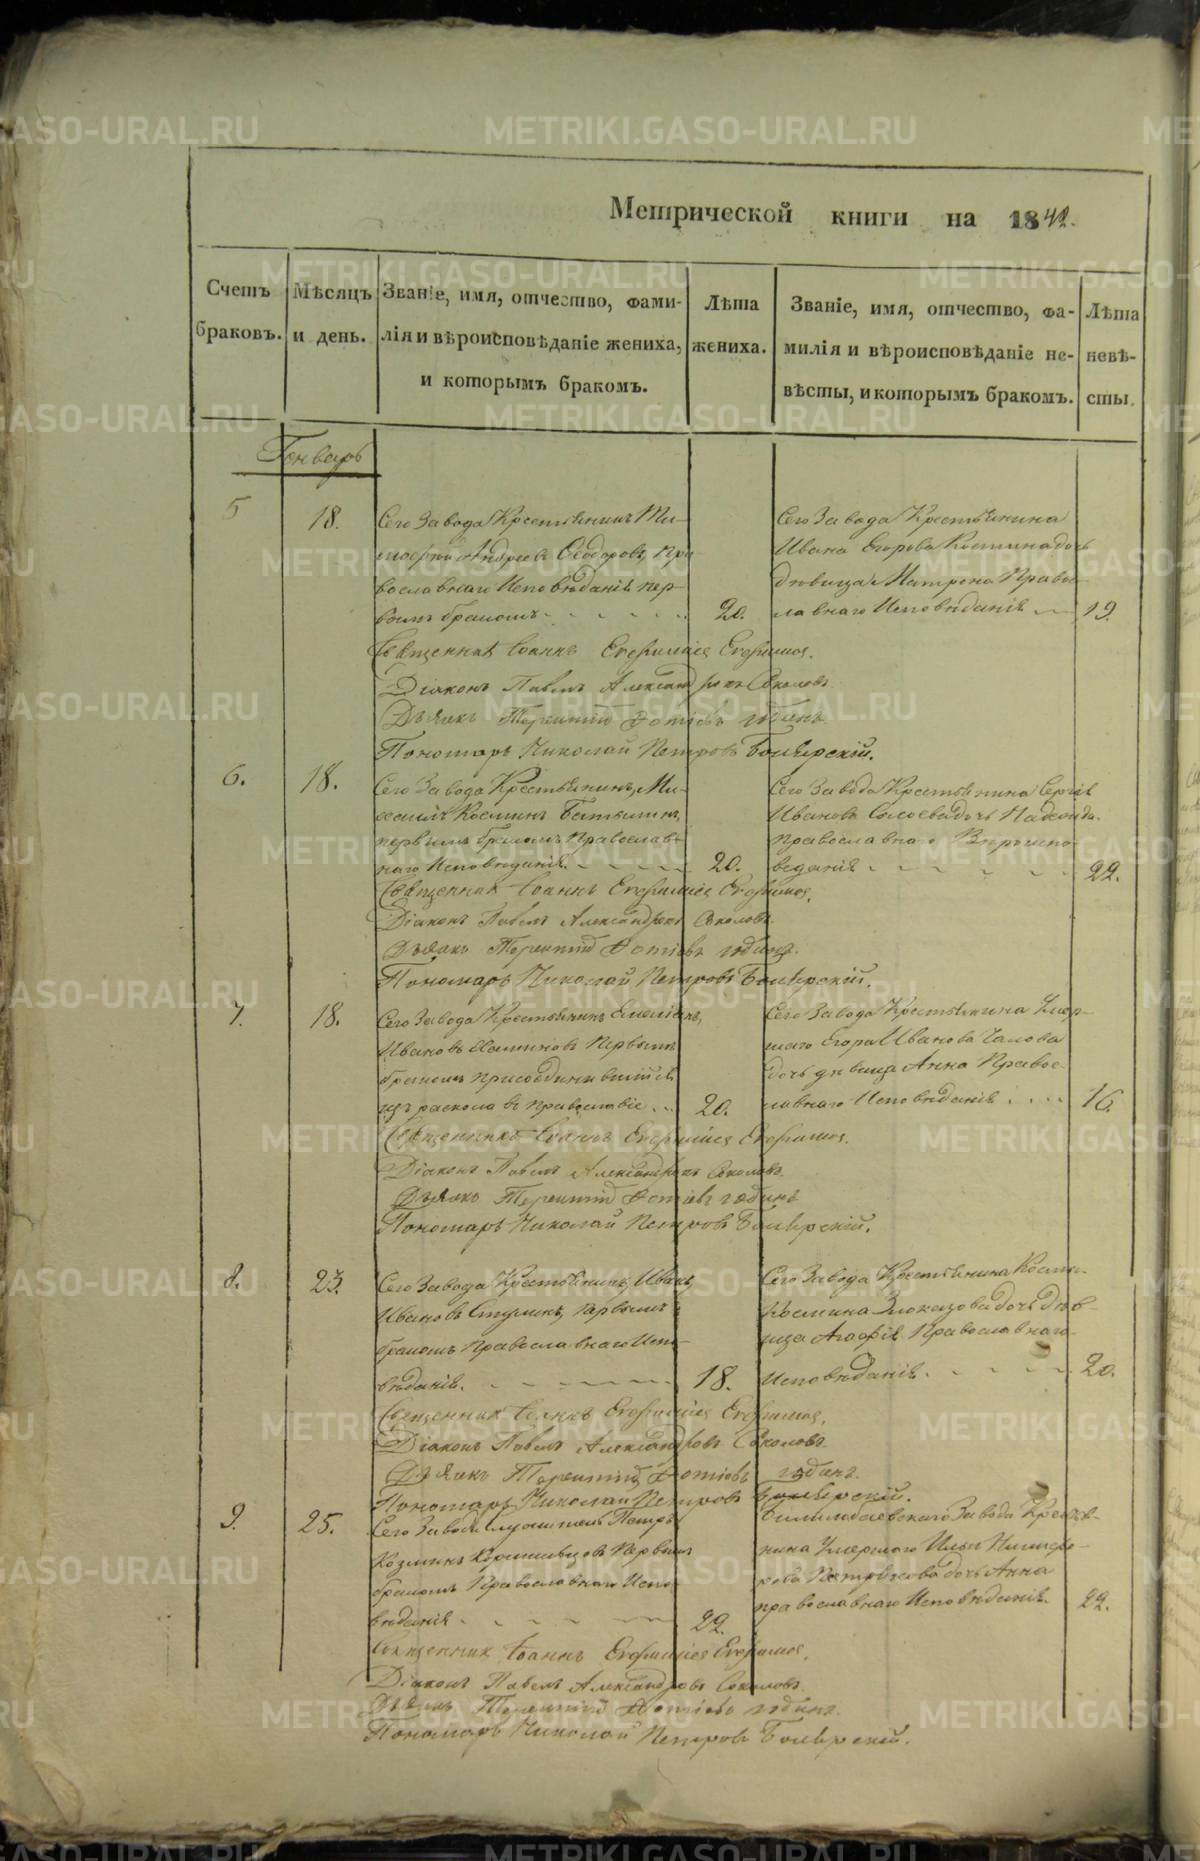 Метрической книги на 1842.
Счетъ браковъ.
Мѣсяцъ и день.
Званіе, имя, отчество, фами-
лія и вѣроисповѣданіе жениха,
и которымъ бракомъ.
Лѣта жениха.
Званіе, имя, отчество, фа-
милія и вѣроисповѣданіе не-
вѣсты, и которымъ бракомъ.
Лѣта невѣ-
сты.
Генварь
5
18.
Сего Завода Крестьянинъ Ти-
мофей Андреевъ Ѳедоровъ, пра
вославнаго Исповѣданія пер-
вымъ бракомъ
20.
Сего Завода Крестьянина
Ивана Егорова Костина дочь
дѣвица Матрона Правос-
лавнаго Исповѣданія
19.
Священникъ Іоаннъ
Діаконъ Павелъ Александровъ Соколовъ
Дьячокъ Терентій Фотіевъ
Пономарь Николай Петровъ Боярскій.
6.
18.
Сего Завода Крестьянинъ, Ми-
хаилъ Космин
первымъ бракомъ Православ-
наго Исповѣданія.
20.
Сего Завода Крестьянина Сергія
Иванова дочь Надежда
православнаго Вѣроиспо-
веданія
22.
Священникъ Іоаннъ
Діаконъ Павелъ Александровъ Соколовъ.
Дьячокъ Терентій Фотіевъ
Пономарь Николай Петровъ Боярскій.
7.
18.
Сего Завода Крестьянинъ Емеліанъ,
Ивановъ Первымъ
бракомъ присоединившійся
изъ раскола въ православіе
20.
Сего Завода Крестьянина Умер-
шаго Егора Иванова
дочь дѣвица Анна Правос-
лавнаго Исповѣданія
16.
Священникъ Іоаннъ
Діаконъ Павелъ Александровъ Соколовъ.
Дьячокъ Терентій Фотіевъ
Пономарь Николай Петровъ Боярскій.
8.
23.
Сего Завода Крестьянинъ, Иванъ,
Ивановъ первымъ
бракомъ Православнаго Испо-
вѣданія.
18.
Сего Завода Крестьянина Космы
Космина Злоказова дочь дѣв-
ица Агафія Православнаго
Исповѣданія
20.
Священникъ Іоаннъ
Діаконъ Павелъ Александровъ Соколовъ
Дьячокъ Терентій Фотіевъ
Пономарь Николай Петровъ Боярскій.
9.
25.
Сего Завода Служитель Петръ
Козминъ Первымъ
бракомъ Православнаго Испо-
вѣданія
22.
Билимбаевскаго Завода Крестья-
нина Умершаго Ильи Никифо-
рова дочь Анна
православнаго Исповѣданія.
22.
Священникъ Іоаннъ
Діаконъ Павелъ Александровъ Соколовъ.
Дьячокъ Терентій Фотіевъ
Пономарь Николай Петровъ Боярскій.
METRIKI.GASO-URAL.RU